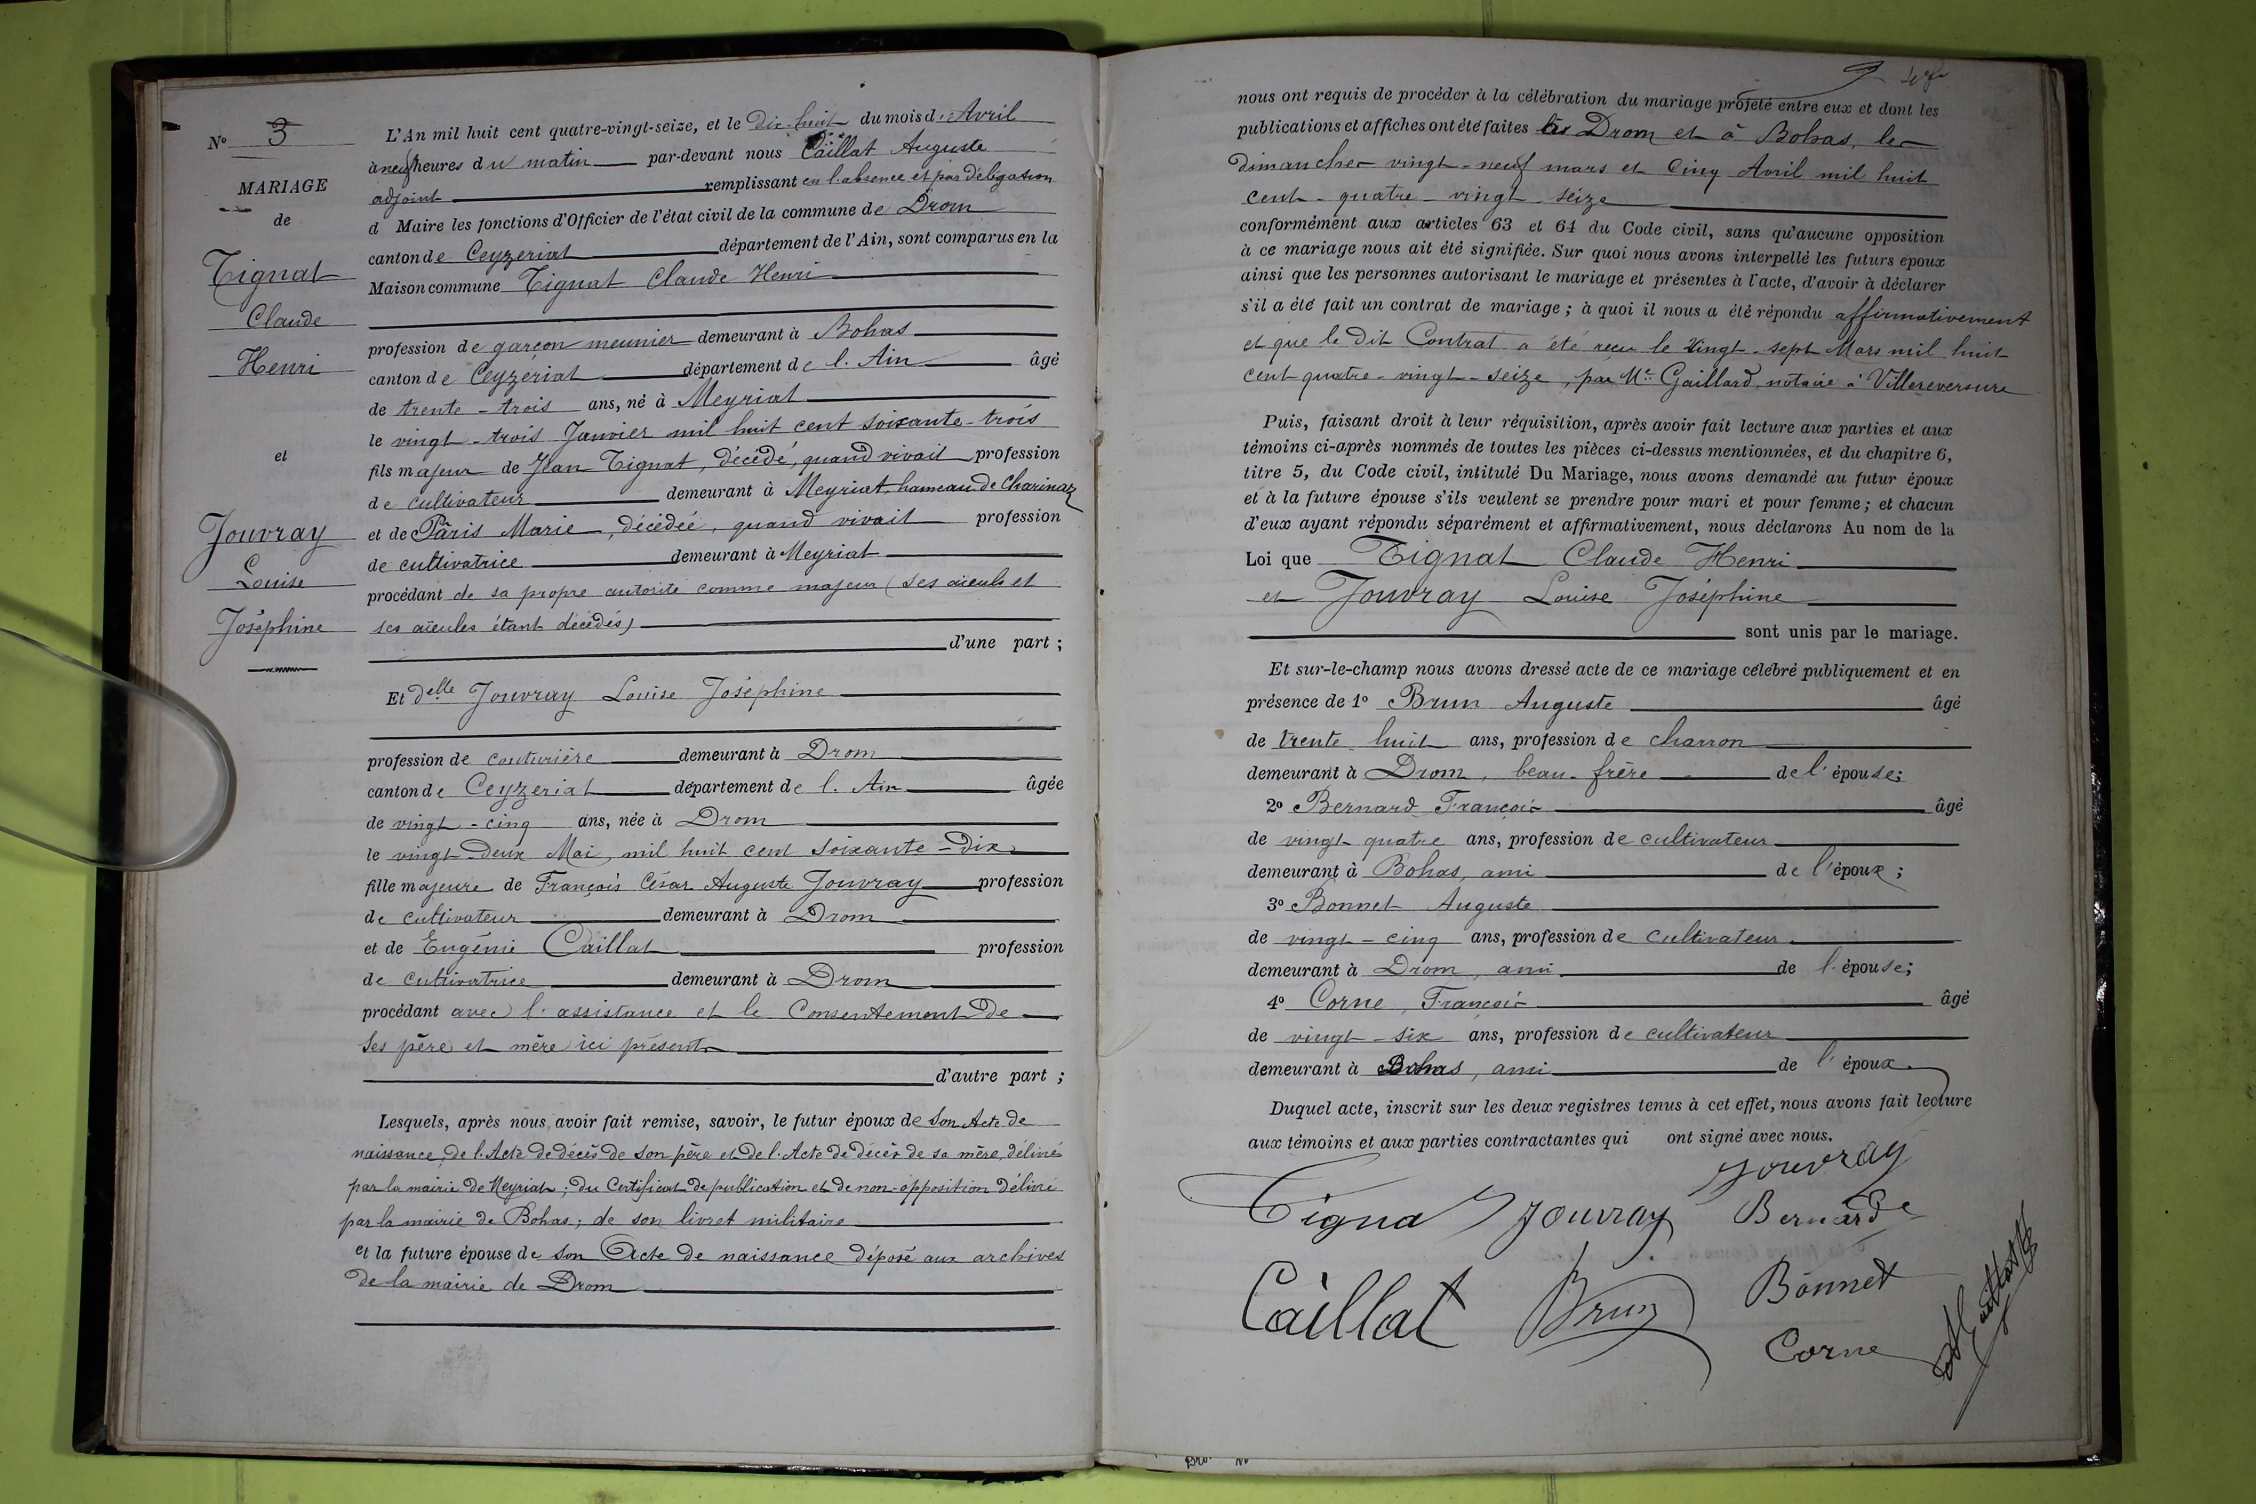 N° 3
MARIAGE
de
Tignat
Claude
Henri
et
Jouvray
Louise
Joséphine
L'An mil huit cent quatre-vingt-seize, et le dix-huit du mois d'Avril
à neuf heures du matin par-devant nous Caillat Auguste
adjoint remplissant en l'absence et par délégation
d Maire les fonctions d'Officier de l'état civil de la commune de Drom
canton de Ceyzériat département de l'Ain, sont comparus en la
Maison commune Tignat Claude Henri
profession de garçon meunier demeurant à Bohas
canton de Ceyzériat département de l'Ain âgé
de trente-trois ans, né à Meyriat
le vingt-trois Janvier mil huit cent soixante-trois
fils majeur de Jean Tignat, décédé, quand vivait profession
de cultivateur demeurant à Meyriat, hameau de Charinaz
et de Pâris Marie, décédée, quand vivait profession
de cultivatrice demeurant à Meyriat
procédant de sa propre autorité comme majeur (ses aïeuls et
ses aïeules étant décédés)
d'une part ;
Et delle Jouvray Louise Joséphine
profession de couturière demeurant à Drom
canton de Ceyzeriat département de l'Ain âgée
de vingt-cinq ans, née à Drom
le vingt-deux Mai, mil huit cent soixante-dix
fille majeure de François César Auguste Jouvray profession
de cultivateur demeurant à Drom
et de Eugénie Caillat profession
de cultivatrice demeurant à Drom
procédant avec l'assistance et le Consentement de
ses père et mère ici présents
d'autre part ;
Lesquels, après nous avoir fait remise, savoir, le futur époux de son Acte de
naissance, de l'Acte de décès de son père et de l'Acte de décès de sa mère, délivrés
par la mairie de Meyriat ; du Certificat de publication et de non-opposition délivré
par la mairie de Bohas ; de son livret militaire
et la future épouse de son Acte de naissance déposé aux archives
de la mairie de Drom
nous ont requis de procéder à la célébration du mariage projeté entre eux et dont les
publications et affiches ont été faites à Drom et à Bohas, les
dimanches vingt-neuf mars et Cinq Avril mil huit
cent-quatre-vingt-seize
conformément aux articles 63 et 64 du Code civil, sans qu'aucune opposition
à ce mariage nous ait été signifiée. Sur quoi nous avons interpellé les futurs époux
ainsi que les personnes autorisant le mariage et présentes à l'acte, d'avoir à déclarer
s'il a été fait un contrat de mariage ; à quoi il nous a été répondu affirmativement
et que le dit Contrat a été reçu le Vingt-sept Mars mil huit
cent quatre-vingt-seize, par Me Gaillard, notaire à Villereversure
Puis, faisant droit à leur réquisition, après avoir fait lecture aux parties et aux
témoins ci-après nommés de toutes les pièces ci-dessus mentionnées, et du chapitre 6,
titre 5, du Code civil, intitulé Du Mariage, nous avons demandé au futur époux
et à la future épouse s'ils veulent se prendre pour mari et pour femme ; et chacun
d'eux ayant répondu séparément et affirmativement, nous déclarons Au nom de la
Loi que Tignat Claude Henri
et Jouvray Louise Joséphine
sont unis par le mariage.
Et sur-le-champ nous avons dressé acte de ce mariage célébré publiquement et en
présence de 1° Brun Auguste âgé
de trente huit ans, profession de charron
demeurant à Drom, beau-frère de l'épouse ;
2° Bernard François âgé
de vingt-quatre ans, profession de cultivateur
demeurant à Bohas, ami de l'époux ;
3° Bonnet Auguste
de vingt-cinq ans, profession de cultivateur
demeurant à Drom, ami de l'épouse ;
4° Corne, François âgé
de vingt-six ans, profession de cultivateur
demeurant à Bohas, ami de l'époux.
Duquel acte, inscrit sur les deux registres tenus à cet effet, nous avons fait lecture
aux témoins et aux parties contractantes qui ont signé avec nous.
Jouvray
Tignat Jouvray Bernard
Caillat Brun Bonnet
Corne
Caillat